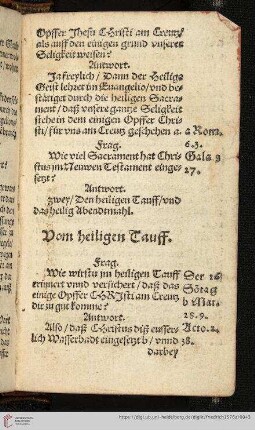 Opffer Jhesu CHristi am Creutz
als auff den einigen grund vnserer
Seligkeit weisen?
Antwort.
Ja freylich / Dann der Heilige
Geist lehret im Euangelio / vnd be-
stätiget durch die heiligen Sacra-
ment / daß vnsere gantze Seligkeit
stehe in dem einigen Opffer Chri-
sti / für vns am Creutz geschehen a.
a Rom.
6.3.
Gala 3
27.
Frag.
Wie viel Sacrament hat Chris-
tus im Newen Testament einge-
setzt?
Antwort.
zwey / Den heiligen Tauff / vnd
das heilig Abendtmahl.
Vom heiligen Tauff.
Frag.
Wie wirstu im heiligen Tauff
erinnert vnnd versichert / daß das
einige Opffer CHRJsti am Creutz
dir zu gut komme?
Der 26
Sõtag
b Mat.
28.9.
Acto.2.
38.
Antwort.
Also / daß Christus diß eusser-
lich Wasserbadt eingesetzt b / vnnd
darbey